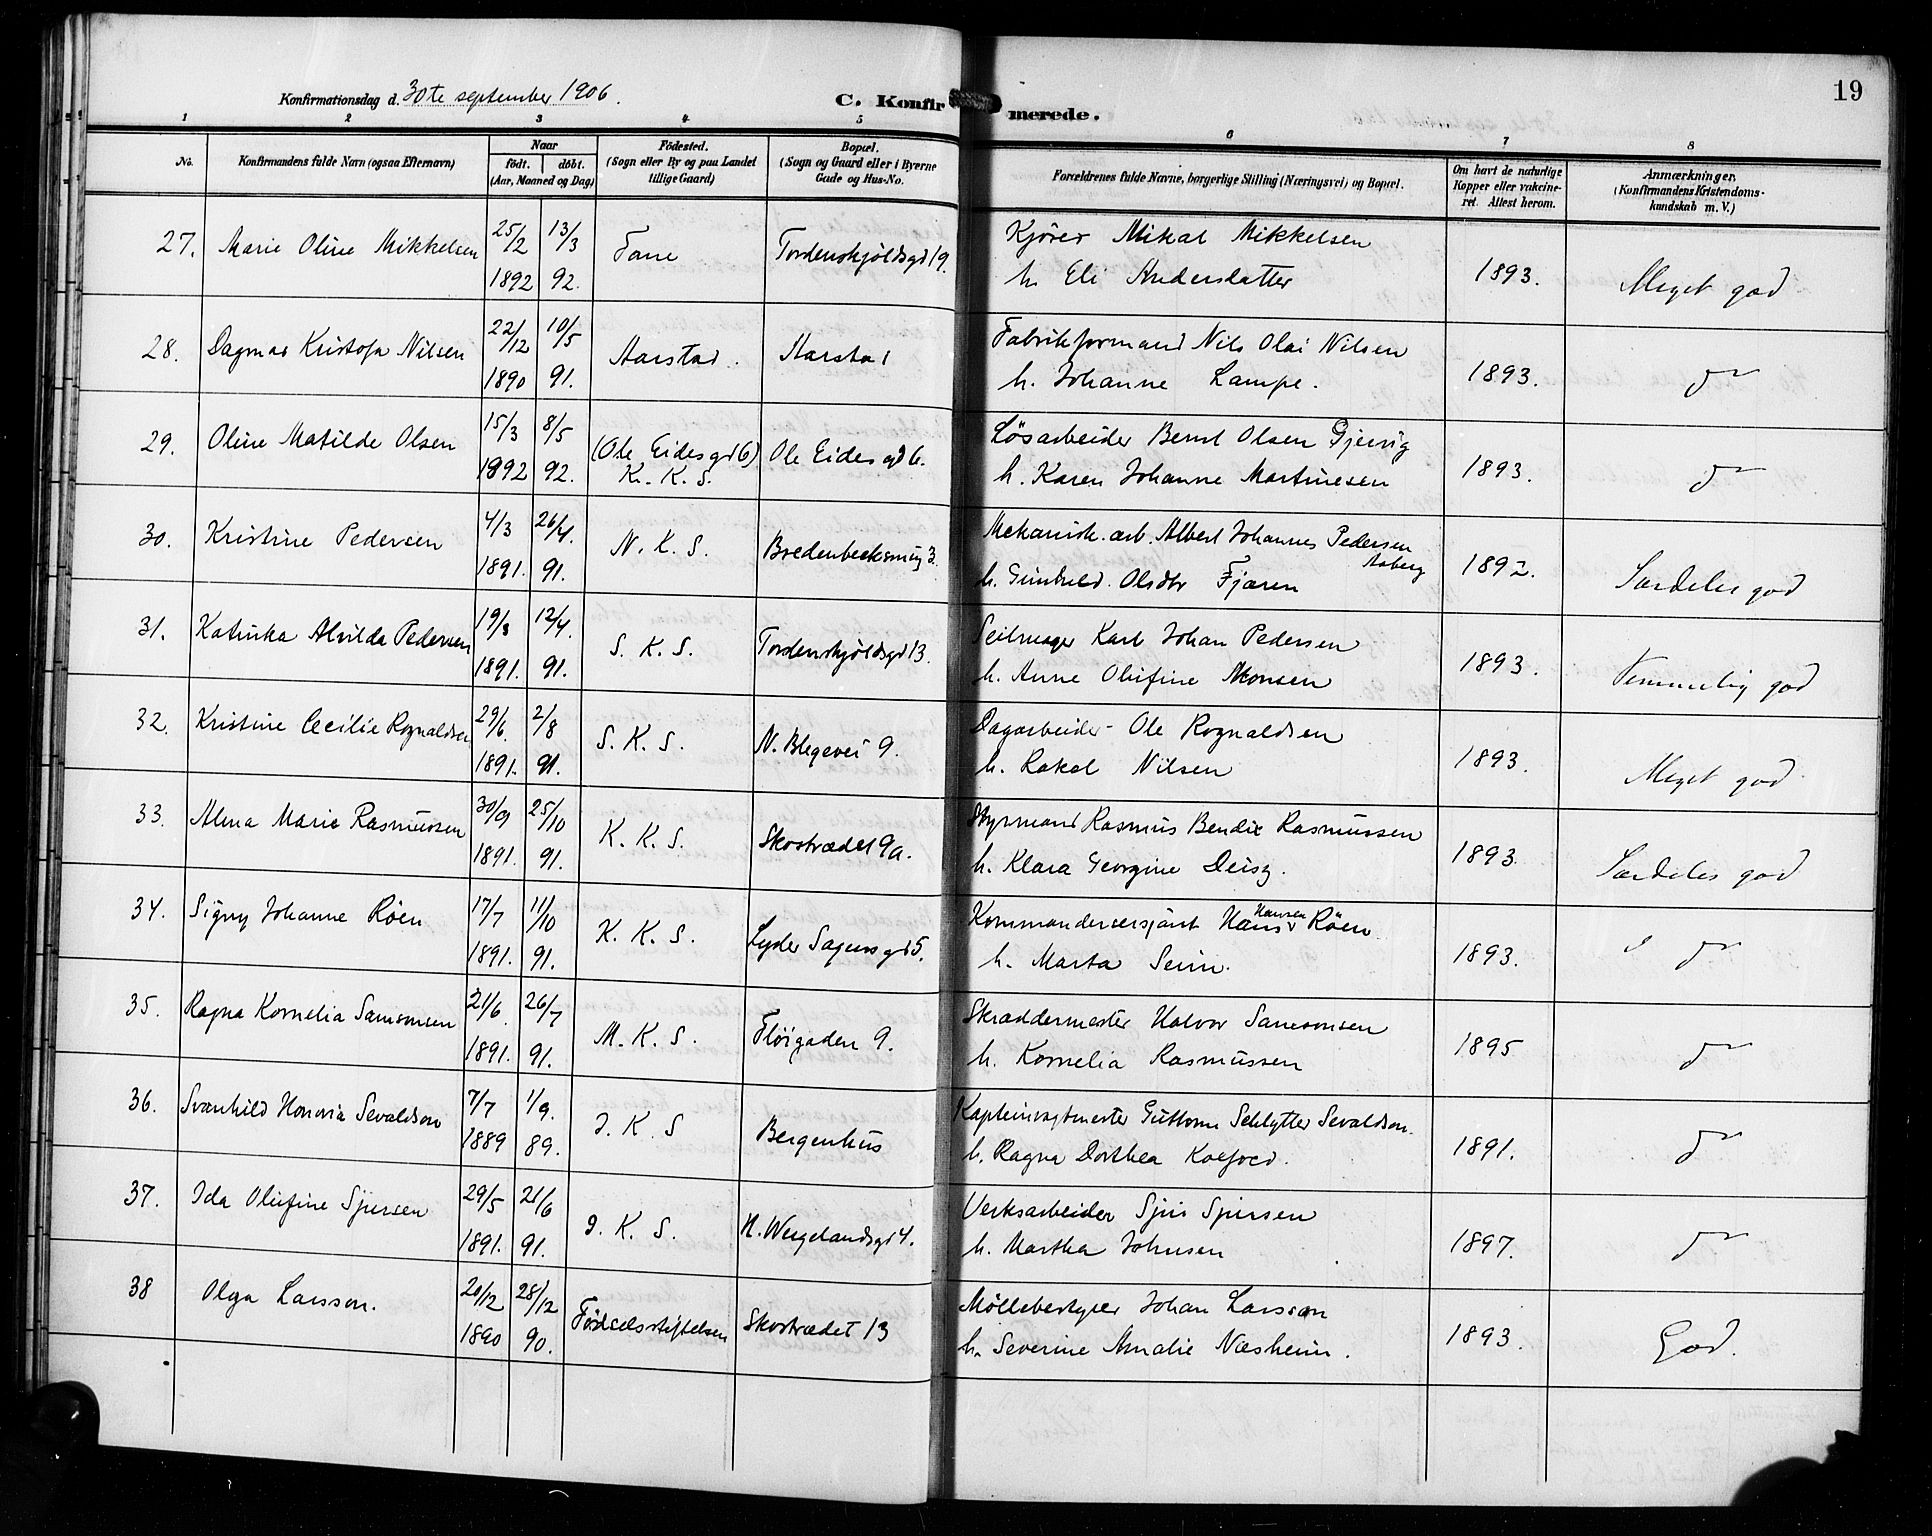 19
Konfirmationsdag d. 30te september 1906.
C. Konfirmerede.
1 2 3 4 5 6 7 8
No. Konfirmandens fulde Navn (ogsaa Efternavn) Naar født. døbt. (Aar, Maaned og Dag) Fødested. (Sogn eller By og paa Landet tillige Gaard) Bopæl. (Sogn og Gaard eller i Byerne Gade og Hus-No. Forældrenes fulde Navne, borgerlige Stilling (Næringsvei) og Bopæl. Om havt de naturlige Kopper eller vakcineret. Attest herom. Anmærkninger. (Konfirmandens Kristendomskundskab m. V.)
27. Marie Oline Mikkelsen 25/2 1892 13/3 92. Fane Tordenskjöldsgd 19. Kjörer Mikal Mikkelsen
h. Eli Andersdatter 1893. Meget god
28. Dagmar Kristofa Nilsen 22/12 1890 10/5 91. Aarstad. Aarstad Fabrikformand Nils Olai Nilsen
h. Johanne Lampe. 1893. do
29. Oline Matilde Olsen 15/3 1892 8/5 92. (Ole Eidesgd 6) K. K. S. Ole Eidesgd 6. Lösarbeider Bernt Olsen Gjervig
h. Karen Johanne Martinesen 1893. do
30. Kristine Pedersen 4/3 1891. 26/4. 91. N. K. S. Bredenbecksmug 3. Mekanisk. arb. Albert Johannes Pedersen Aaberg
h. Gunhild Olsdtr Fjæren 1892. Særdeles god
31. Katinka Alvilda Pedersen 19/3 1891. 12/4. 91. S. K. S. Tordenskjöldsgd 13. Seilmager Karl Johan Pedersen
h. Anne Olufine Monsen 1893. Temmelig god
32. Kristine Cecilie Rognaldsen 29/6. 1891. 2/8 91. S. K. S. N. Blegevei 9. Dagarbeider Ole Rognaldsen
h. Rakel Nilsen 1893. Meget god
33. Alma Marie Rasmussen 30/9 1891. 25/10 91. K. K. S. Skostrædet 9a. Styrmand Rasmus Bendix Rasmussen
h. Klara Georgine Deisz. 1893. Særdeles god
34. Signy Johanne Röen 17/7 1891. 11/10 91. K. K. S. Lyder Sagensgd 5. Kommandersersjant Hans Hansen Röen
h. Marta Seim. 1893. do
35. Ragna Kornelia Samsonsen 21/6. 1891. 26/7 91. M. K. S. Flöigaden 9. Skræddermester Halvor Samsonsen
h. Kornelia Rasmussen 1895 do
36. Svanhild Honoria Sevaldson 7/7 1889 1/9. 89. J. K. S Bergenhus Kapteinvagtmester Guttorm Schlytter Sevaldson.
h. Ragna Dorthea Koefoed. 1891. do
37. Ida Olufine Sjursen 29/5 1891. 21/6 91. J. K. S. H. Wergelandsgd 4. Verksarbeider Sjur Sjursen
h. Martha Johnsen 1897. do
38 Olga Larsson. 20/12 1890 28/12 90. Fødselsstiftelsen Skostrædet 13 Möllebestyrer Johan Larsson
h. Severine Amalie Næsheim. 1893. God.